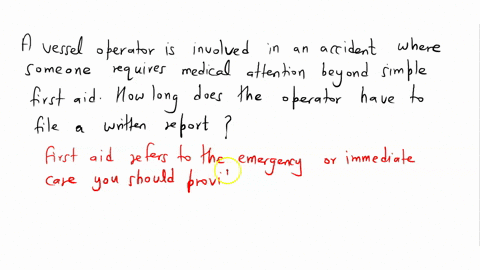 A vessel operator is involved in an accident where
someone requires medical attention beyond simple
first aid. How long does the operator have to
file a written report ?
first aid refers to the emergency or immediate
care you should provi